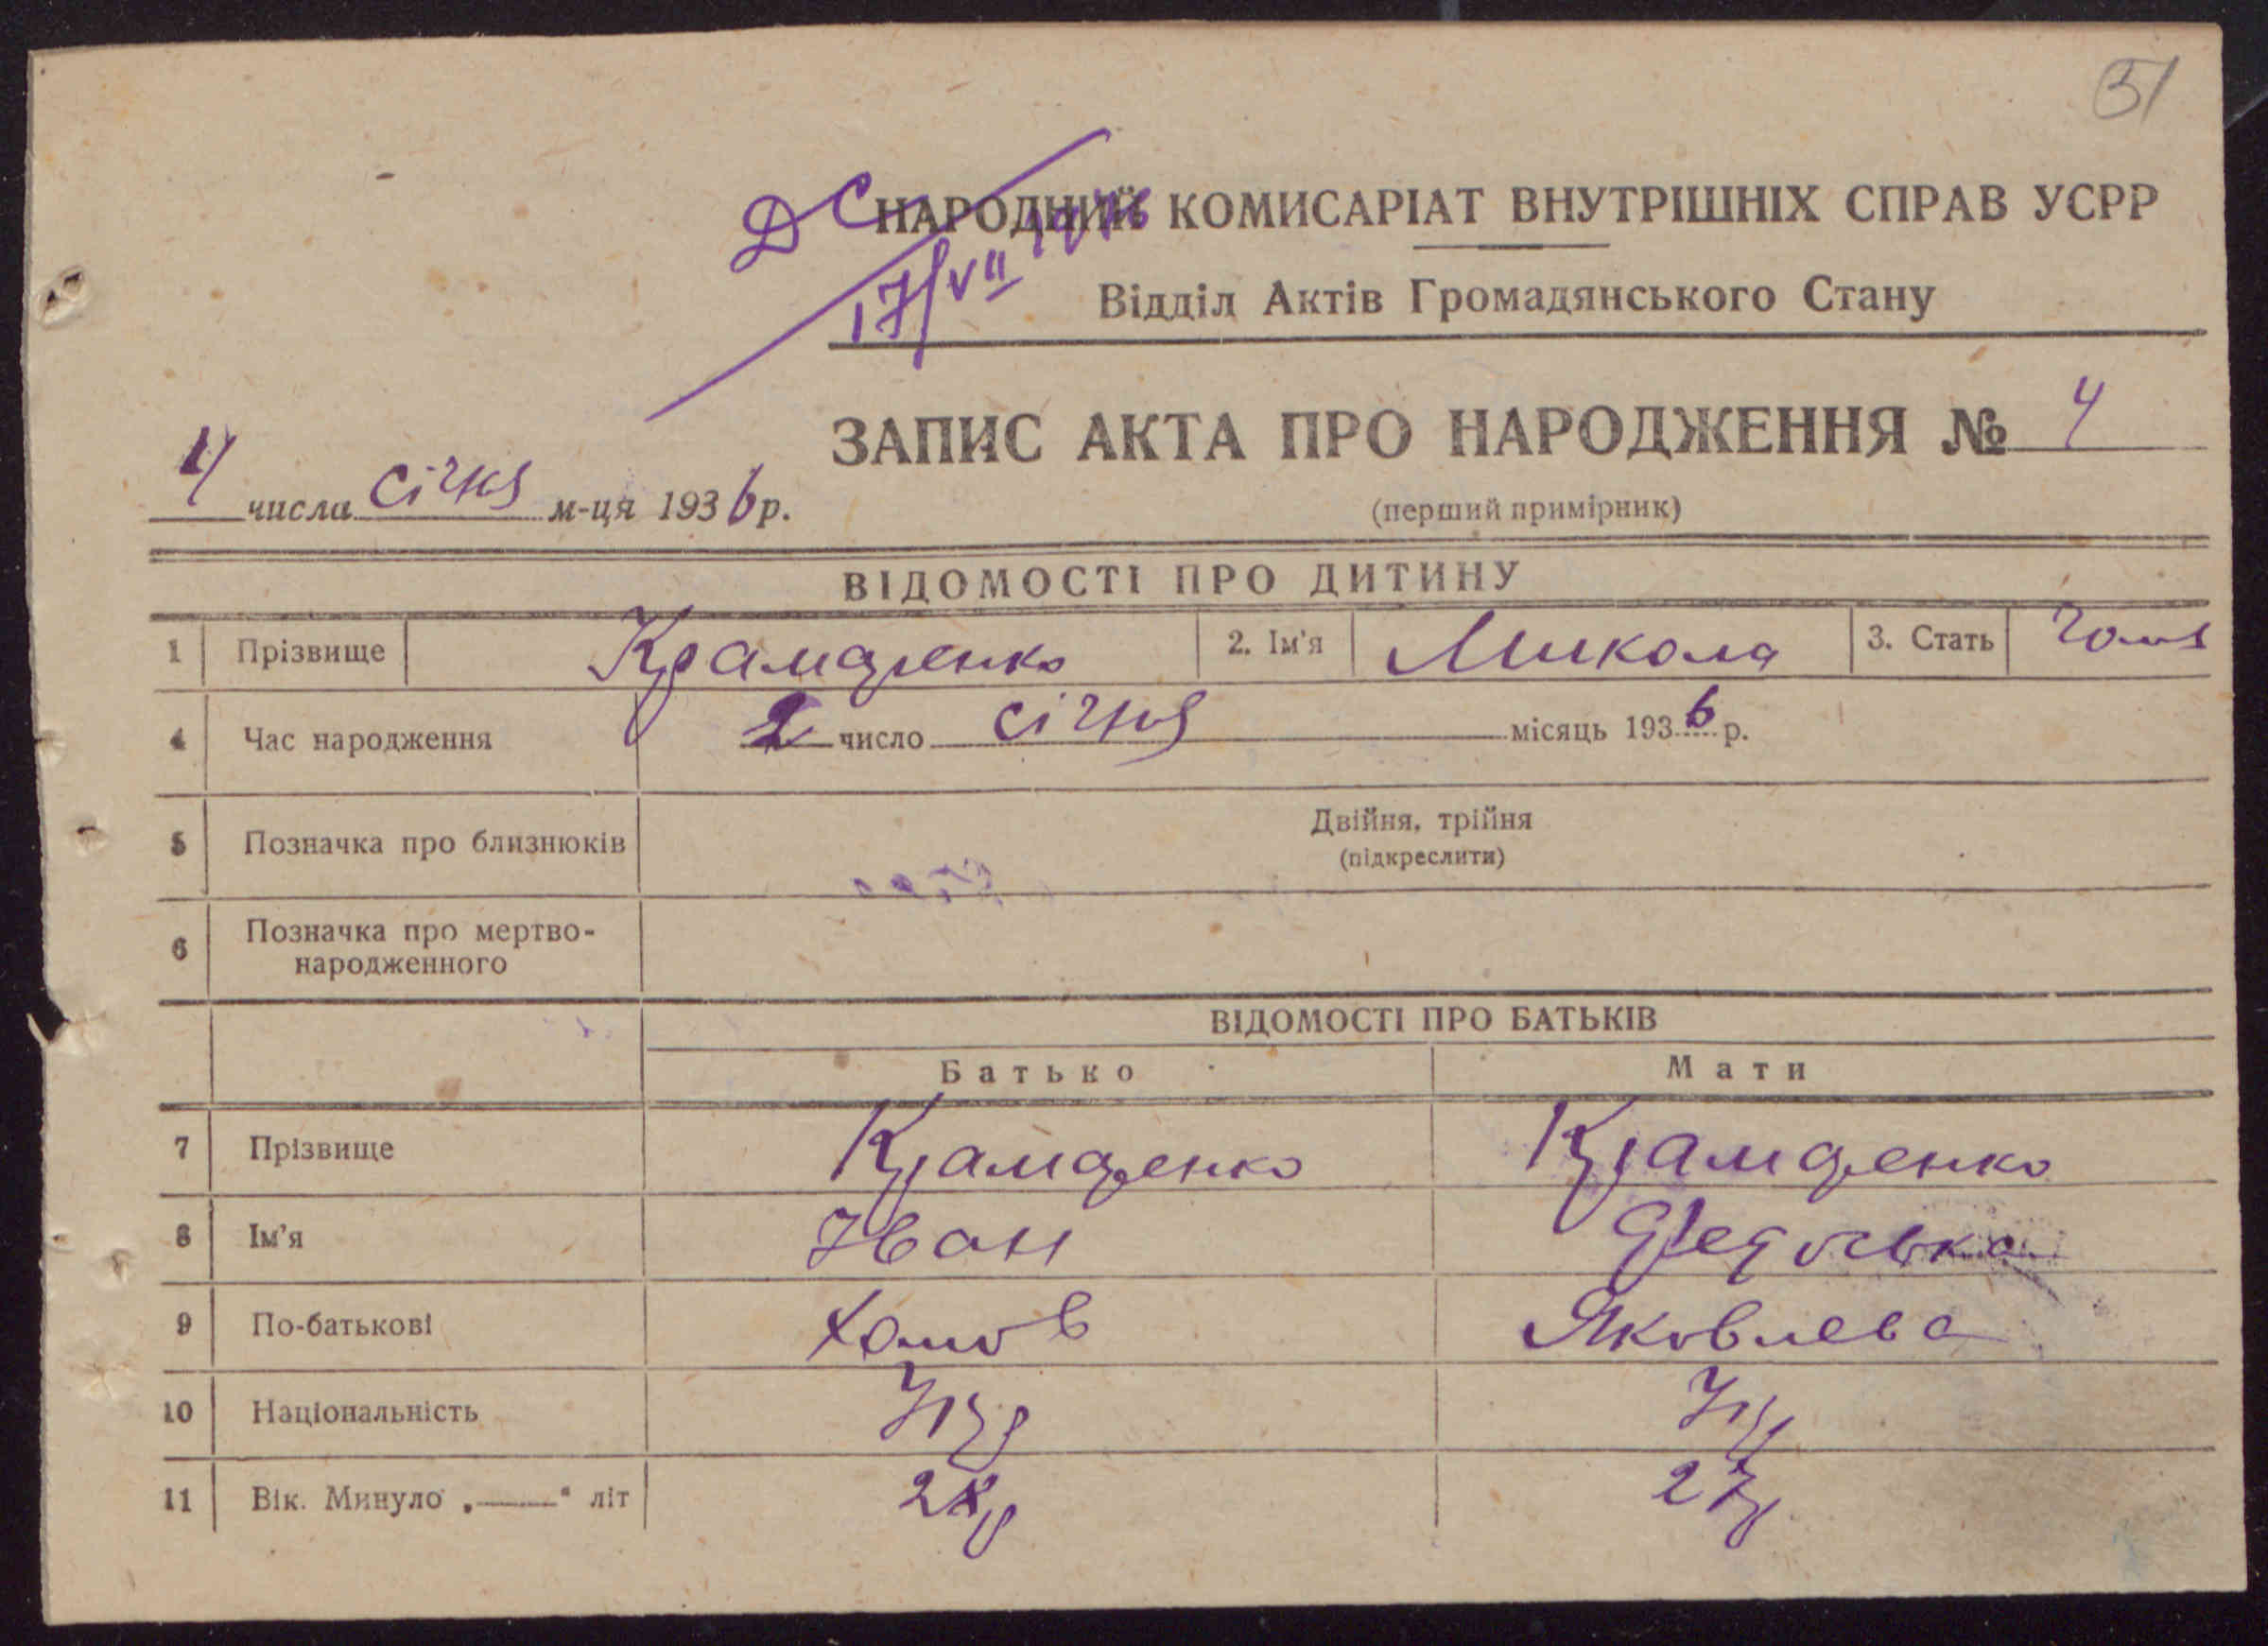 51
НАРОДНИЙ КОМИСАРІАТ ВНУТРІШНІХ СПРАВ УСРР
ДС
17/VII
Відділ Актів Громадянського Стану
ЗАПИС АКТА ПРО НАРОДЖЕННЯ № 4
4 числа січня м-ця 1936 р.
(перший примірник)
ВІДОМОСТІ ПРО ДИТИНУ
1 Прізвище Крамаренко 2. Ім'я Микола 3. Стать
4 Час народження 2 число січня місяць 1936 р.
5 Позначка про близнюків Двійня, трійня
(підкреслити)
6 Позначка про мертво-
народженного
ВІДОМОСТІ ПРО БАТЬКІВ
Батько Мати
7 Прізвище Крамаренко Крамаренко
8 Ім'я Іван Федоська
9 По-батькові Хомов Яковлева
10 Національність Укр Укр
11 Вік. Минуло „——“ літ 28р 27р